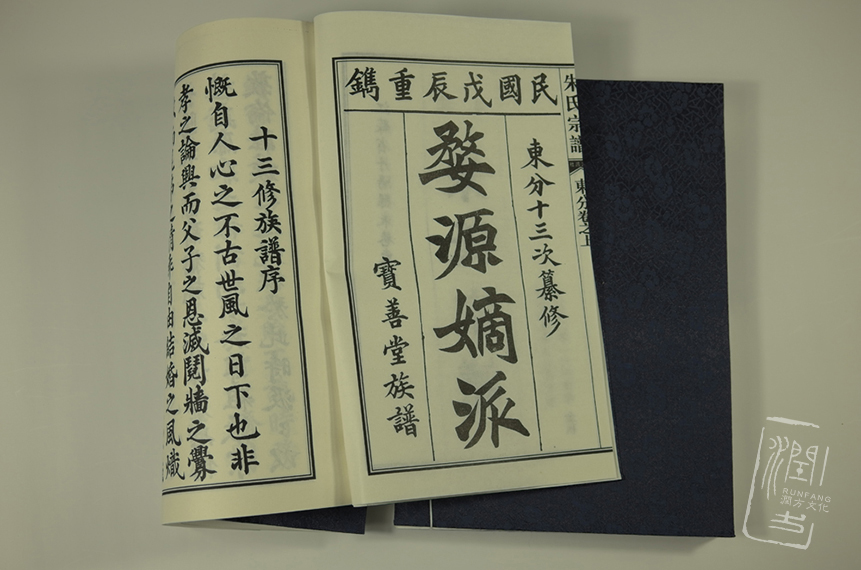 民國戊辰重鐫
東分十三次纂修
婺源嫡派
寶善堂族譜
朱氏宗譜
東分卷之上
十三修族譜序
慨自人心之不古世風之日下也非
孝之論興而父子之恩滅鬩牆之釁
自由結婚之風熾
潤书
RUNFANG
潤方文化